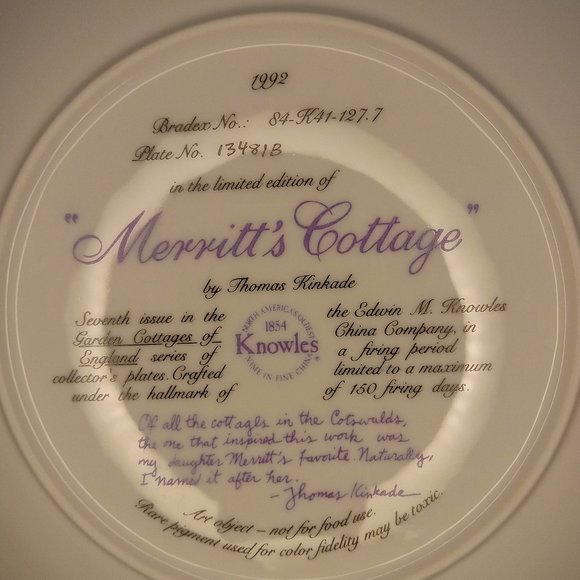 1992
Bradex No.: 84-K41-127.7
Plate No. 13481B
in the limited edition of
"Merritt's Cottage"
by Thomas Kinkade
Seventh issue in the
Garden Cottages of
England series of
collector's plates. Crafted
under the hallmark of
NORTH AMERICA'S OLDEST
1854
Knowles
NAME IN FINE CHINA
the Edwin M. Knowles
China Company, in
a firing period
limited to a maximum
of 150 firing days.
Of all the cottages in the Cotswolds,
the one that inspired this work was
my daughter Merritt's favorite. Naturally,
I named it after her.
- Thomas Kinkade
Art object – not for food use.
Rare pigment used for color fidelity may be toxic.